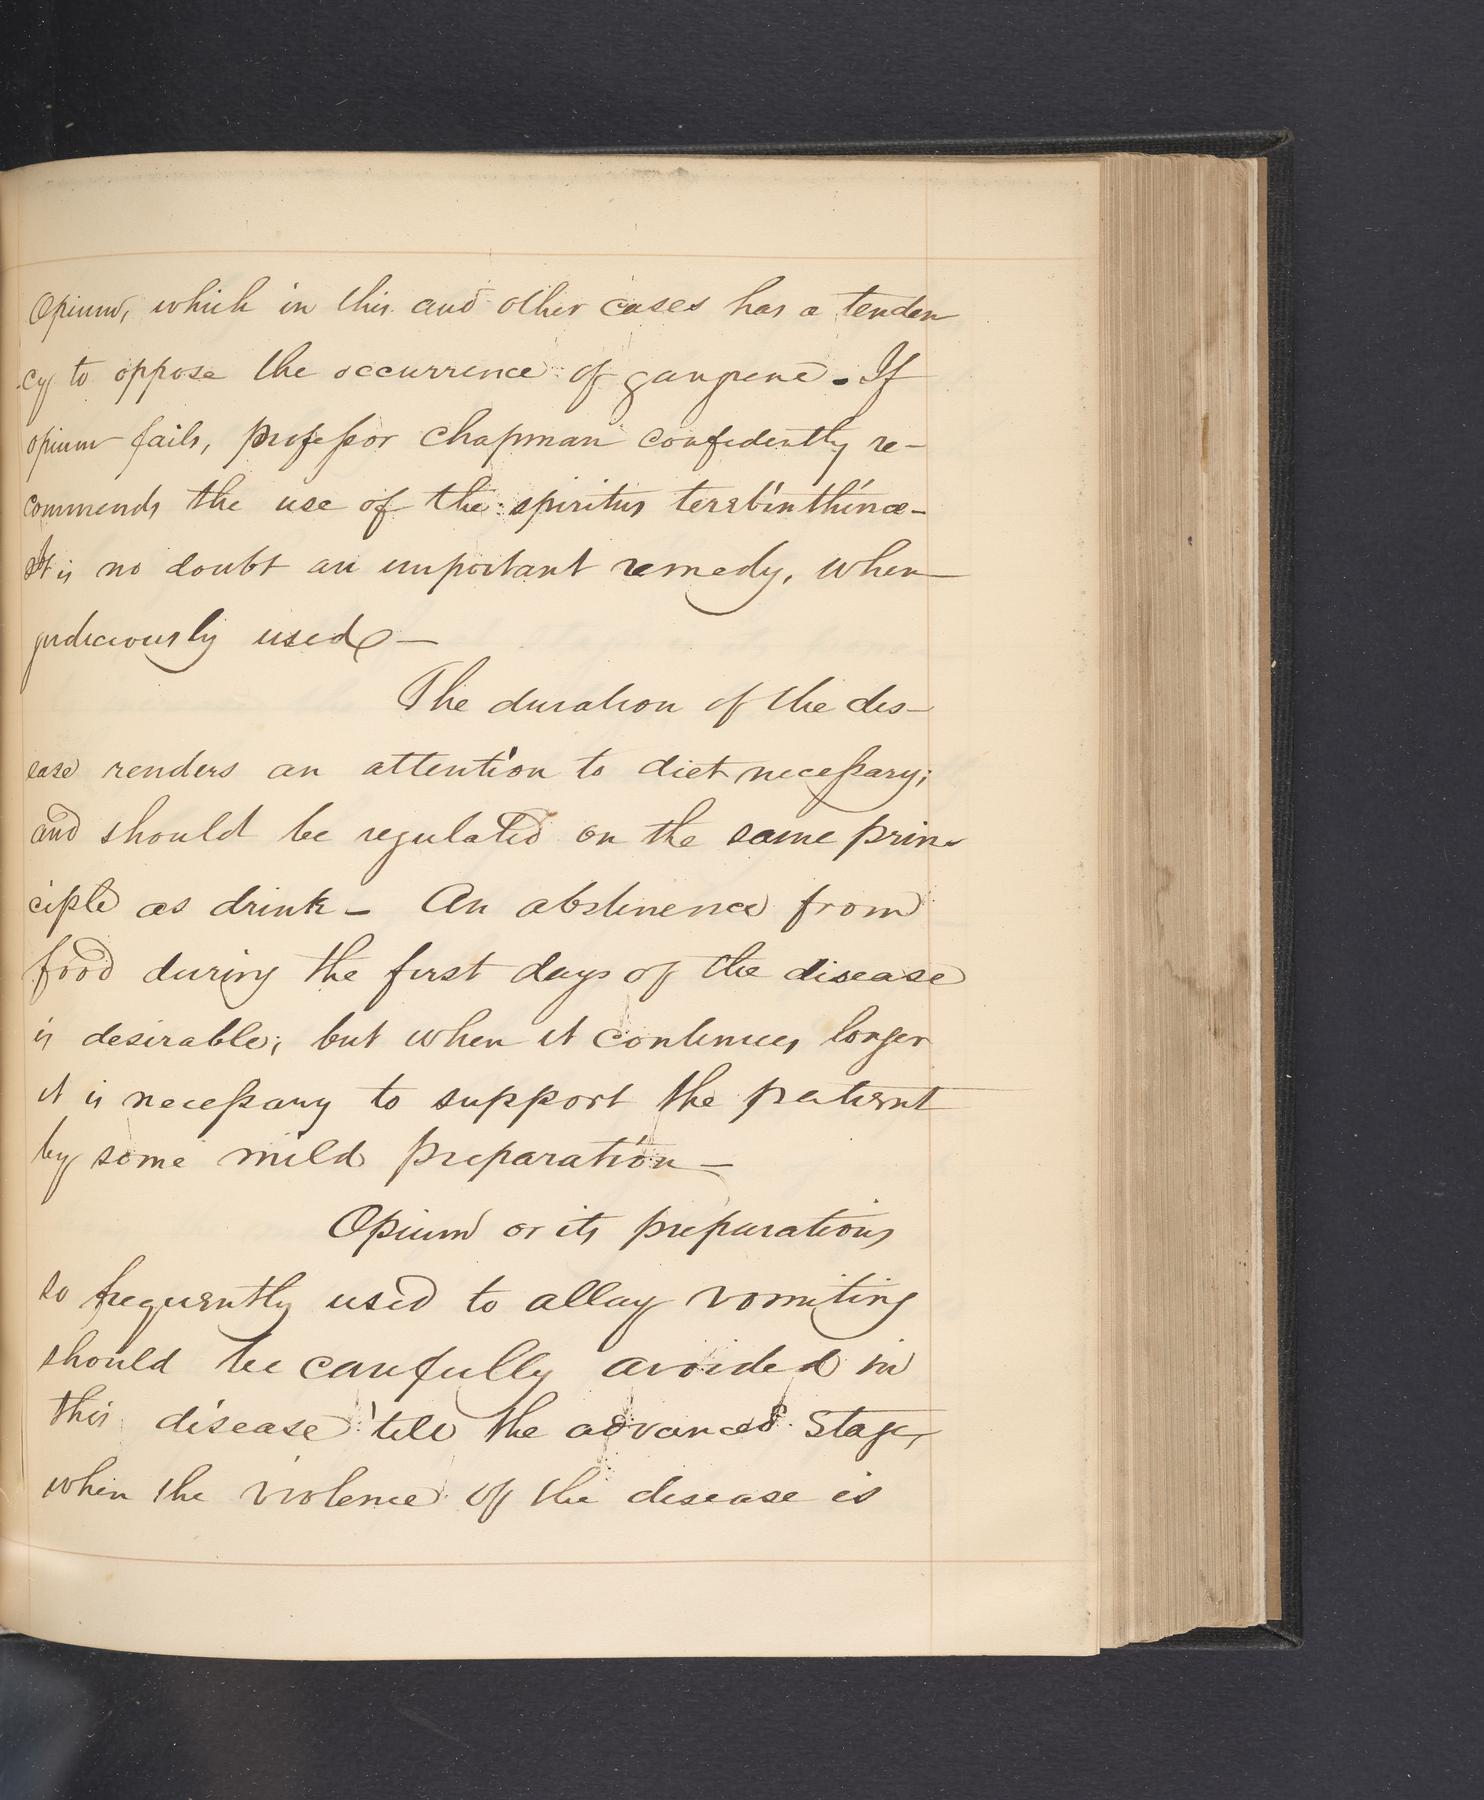 Opium, which in this and other cases has a tenden
-cy to oppose the occurrence of gangrene. If
opium fails, professor Chapman confidently re-
commends the use of the spiritus terebinthinæ-
It is no doubt an important remedy, when
judiciously used-
The duration of the dis-
ease renders an attention to diet necessary;
and should be regulated on the same prin-
ciple as drink- An abstinence from
food during the first days of the disease
is desirable; but when it continues longer
it is necessary to support the patient
by some mild preparation-
Opium or its preparations
so frequently used to allay vomiting
should be carefully avoided in
this disease 'till the advanced stage,
when the violence of the disease is